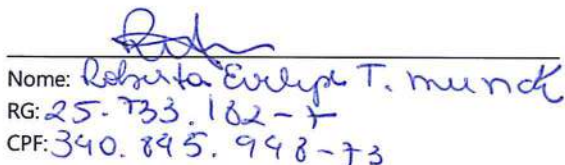 Nome: Roberta T. Munck
RG: 25.733.182-7
CPF: 340.895.948-73